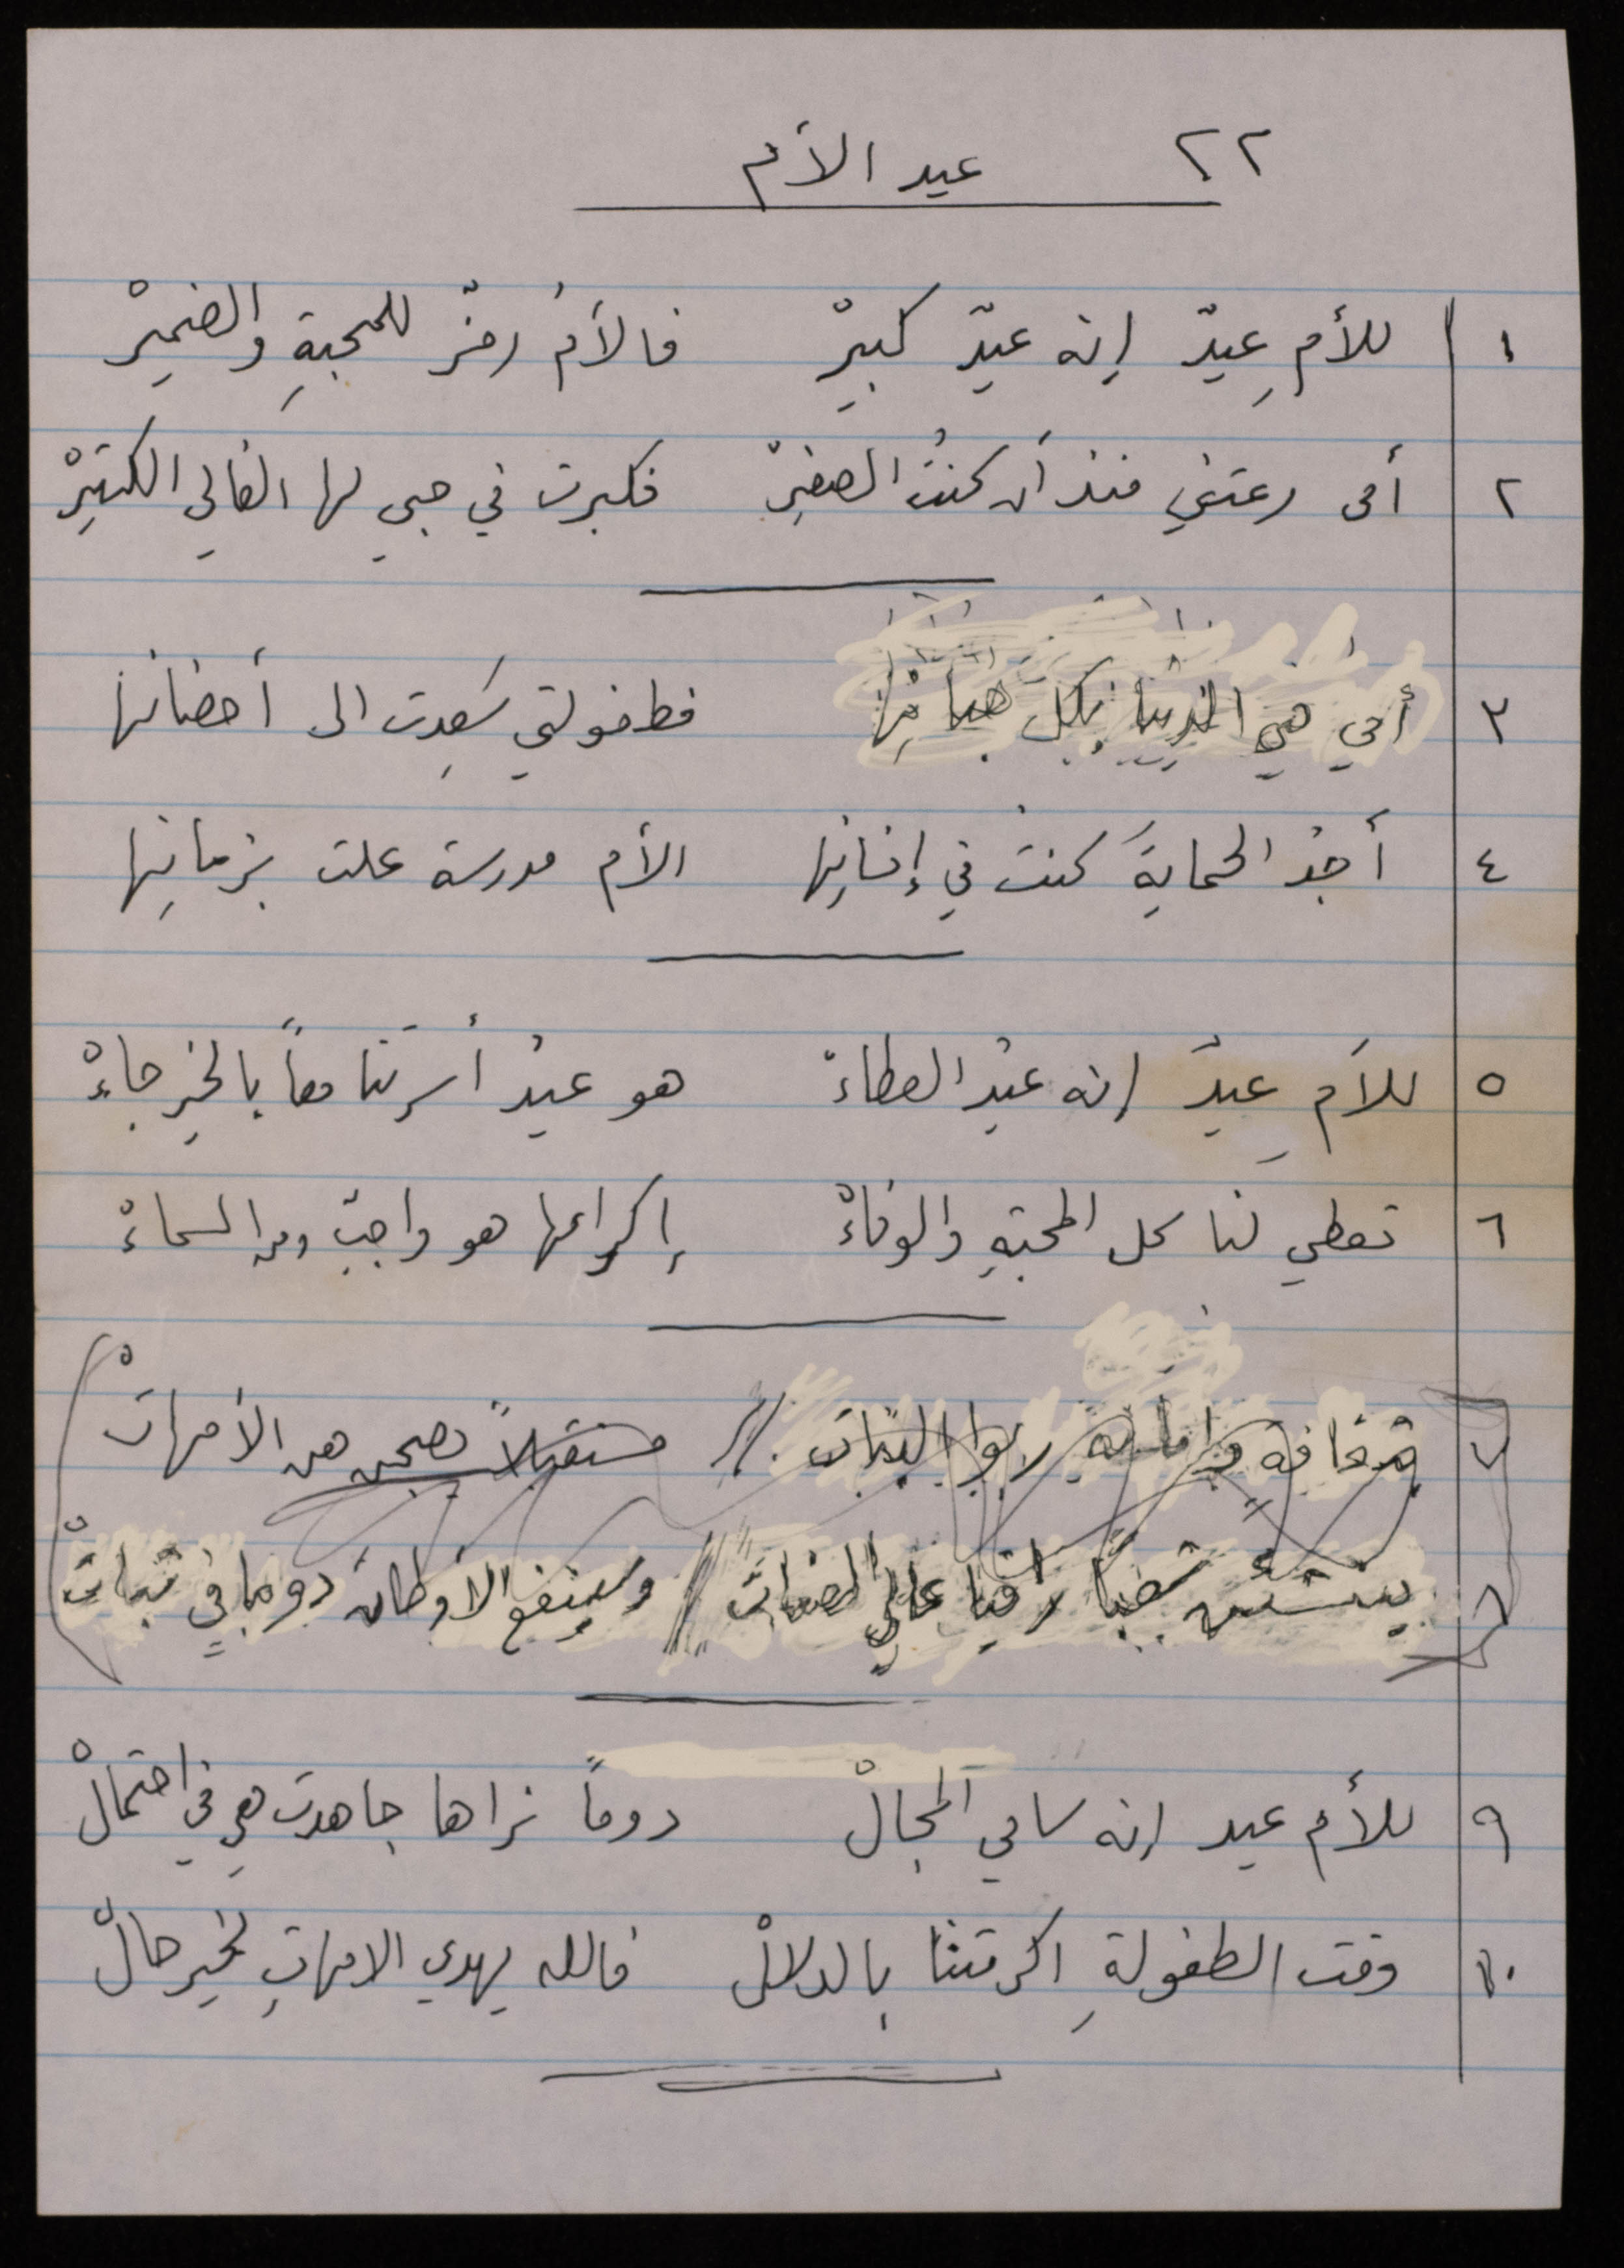 ٢٢ عيد الأم
١ للأمِ عيدٌ إنه عيدٌ كبيرْ فالأمُ رمزٌ للمحبةِ والضميرْ
٢ أمي رعتني منذ أن كنتُ الصغيرْ فكبرت في حبي لها الغالي الكثيرْ
٣ أمي هي الدنيا بكل فطفولتي سَعِدت الى أحضانها
٤ أجدُ الحمايةَ كنتُ في إنسانِها الأم مدرسة علت بزمانِها
٥ للأمِ عيدٌ إنه عيدُ العطاءْ هو عيدُ أسرتنا معاً بالخير جاءْ
٦ تعطي لنا كل المحبةِ والوفاءْ إكرامها هو واجبٌ ومن السماءْ
٧ بثقافةٍ ربوا البنات // مستقبلاً تصبحن هن الأمهاتْ
٨ شعباً راقيا عالي الصفات // وسينفع الأوطان دوما في ثباتْ
٩ للأم عيد إنه سامي المجالْ دوماً نراها جاهدت هي في احتمالْ
١٠ وقت الطفولةِ اكرمتنا بالدلالْ فالله يهدي الامهاتِ لخير حالْ